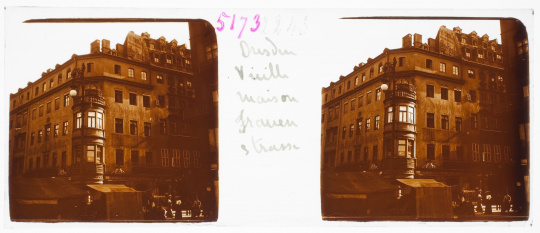 5173 243
Dresden
Vieille
maison
frauen
strasse